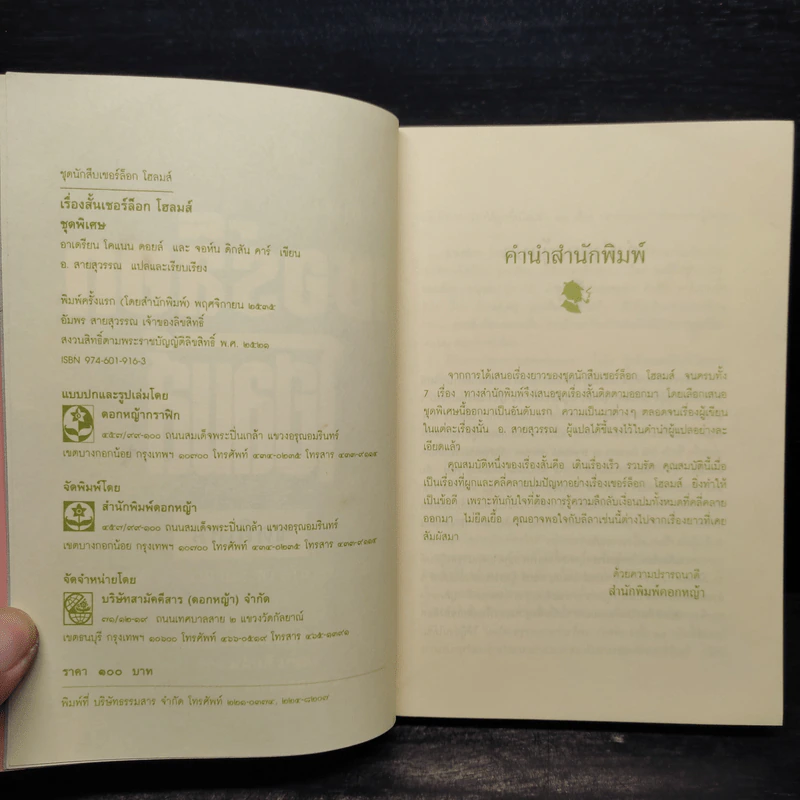 ชุดนักสืบเชอร์ล็อก โฮลมส์
เรื่องสั้นเชอร์ล็อก โฮลมส์
ชุดพิเศษ
อาเดรียน โคแนน ดอยล์ และ จอห์น ดิกสัน คาร์ เขียน
อ. สายสุวรรณ แปลและเรียบเรียง
พิมพ์ครั้งแรก (โดยสำนักพิมพ์) พฤศจิกายน ๒๕๓๕
อัมพร สายสุวรรณ เจ้าของลิขสิทธิ์
สงวนสิทธิ์ตามพระราชบัญญัติลิขสิทธิ์ พ.ศ. ๒๕๒๑
ISBN 974-601-916-3
แบบปกและรูปเล่มโดย
ดอกหญ้ากราฟิก
๔๕๗/๙๙-๑๐๐ ถนนสมเด็จพระปิ่นเกล้า แขวงอรุณอมรินทร์
เขตบางกอกน้อย กรุงเทพฯ ๑๐๗๐๐ โทรศัพท์ ๔๓๔-๐๒๓๕ โทรสาร
จัดพิมพ์โดย
สำนักพิมพ์ดอกหญ้า
๔๕๗/๙๙-๑๐๐ ถนนสมเด็จพระปิ่นเกล้า แขวงอรุณอมรินทร์
เขตบางกอกน้อย กรุงเทพฯ ๑๐๗๐๐ โทรศัพท์ ๔๓๔-๐๒๓๕ โทรสาร
จัดจำหน่ายโดย
บริษัทสามัคคีสาร (ดอกหญ้า) จำกัด
๓๑/๑๒-๑๙ ถนนเทศบาลสาย ๒ แขวงวัดกัลยาณ์
เขตธนบุรี กรุงเทพฯ ๑๐๖๐๐ โทรศัพท์ ๔๖๖-๐๕๑๙ โทรสาร ๔๖๕-๑๓๙๑
ราคา ๑๐๐ บาท
พิมพ์ที่ บริษัทธรรมสาร จำกัด โทรศัพท์
คำนำสำนักพิมพ์
จากการได้เสนอเรื่องยาวของชุดนักสืบเชอร์ล็อก โฮลมส์ จนครบทั้ง
7 เรื่อง ทางสำนักพิมพ์จึงเสนอชุดเรื่องสั้นติดตามออกมา โดยเลือกเสนอ
ชุดพิเศษนี้ออกมาเป็นอันดับแรก ความเป็นมาต่างๆ ตลอดจนเรื่องผู้เขียน
ในแต่ละเรื่องนั้น อ. สายสุวรรณ ผู้แปลได้ชี้แจงไว้ในคำนำผู้แปลอย่างละ
เอียดแล้ว
คุณสมบัติหนึ่งของเรื่องสั้นคือ เดินเรื่องเร็ว รวบรัด คุณสมบัตินี้เมื่อ
เป็นเรื่องที่ผูกและคลี่คลายปมปัญหาอย่างเรื่องเชอร์ล็อก โฮลมส์ ยิ่งทำให้
เป็นข้อดี เพราะทันกับใจที่ต้องการรู้ความลึกลับเงื่อนปมทั้งหมดที่คลี่คลาย
ออกมา ไม่ยืดเยื้อ คุณอาจพอใจกับลีลาเช่นนี้ต่างไปจากเรื่องยาวที่เคย
สัมผัสมา
ด้วยความปรารถนาดี
สำนักพิมพ์ดอกหญ้า